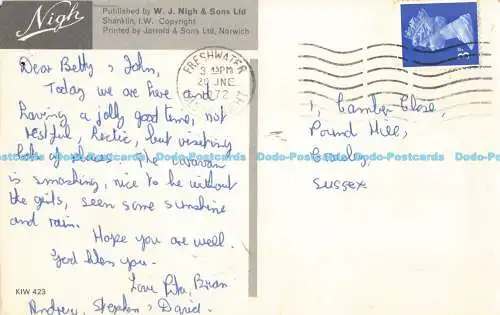 Nigh
Published by W. J. Nigh & Sons Ltd
Shanklin, I.W. Copyright
Printed by Jarrold & Sons Ltd, Norwich
FRESHWATER
3 PM
29 JNE
1972
Dear Betty & John,
Today we are here and
having a jolly good time, not
restful, hectic, but visiting
lots of places. The caravan
is smashing, nice to be without
the girls, seen some sunshine
and rain.
Hope you are well.
God bless you.
Love Brian
Andrew, Stephen & David.
KIW 423
1, Camber Close,
Pound Hill,
Crawley,
SUSSEX
Dodo-Postcards Dodo-Postcards Dodo-Postcards Dodo-Postcards